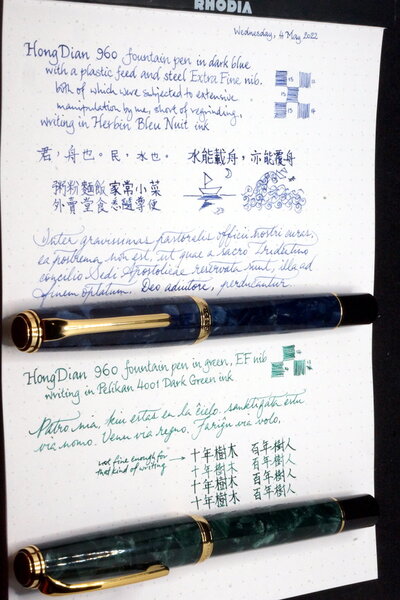 RHODIA
Wednesday, 4 May 2022
HongDian 960 fountain pen in dark blue
with a plastic feed and steel Extra Fine nib.
both of which were subjected to extensive
manipulation by me, short of regrinding,
writing in Herbin Bleu Nuit ink
君，舟也。民，水也。 水能載舟，亦能覆舟
粥粉麵飯家常小菜
外賣堂食悉隨尊便
Inter gravissimas pastoralis officii nostri curas,
ea postrema non est, ut quae a sacro Tridentino
concilio Sedi Apostolicae reservata sunt, illa ad
finem optatum, Deo adiutore, perducantur.
HongDian 960 fountain pen in green, EF nib
writing in Pelikan 4001 Dark Green ink
Patro nia, kiu estas en la ĉielo, sanktigata estu
via nomo. Venu via regno. Fariĝu via volo,
not fine enough for
that kind of writing
→ 十年樹木 百年樹人
十年樹木 百年樹人
十年樹木 百年樹人
十年樹木 百年樹人